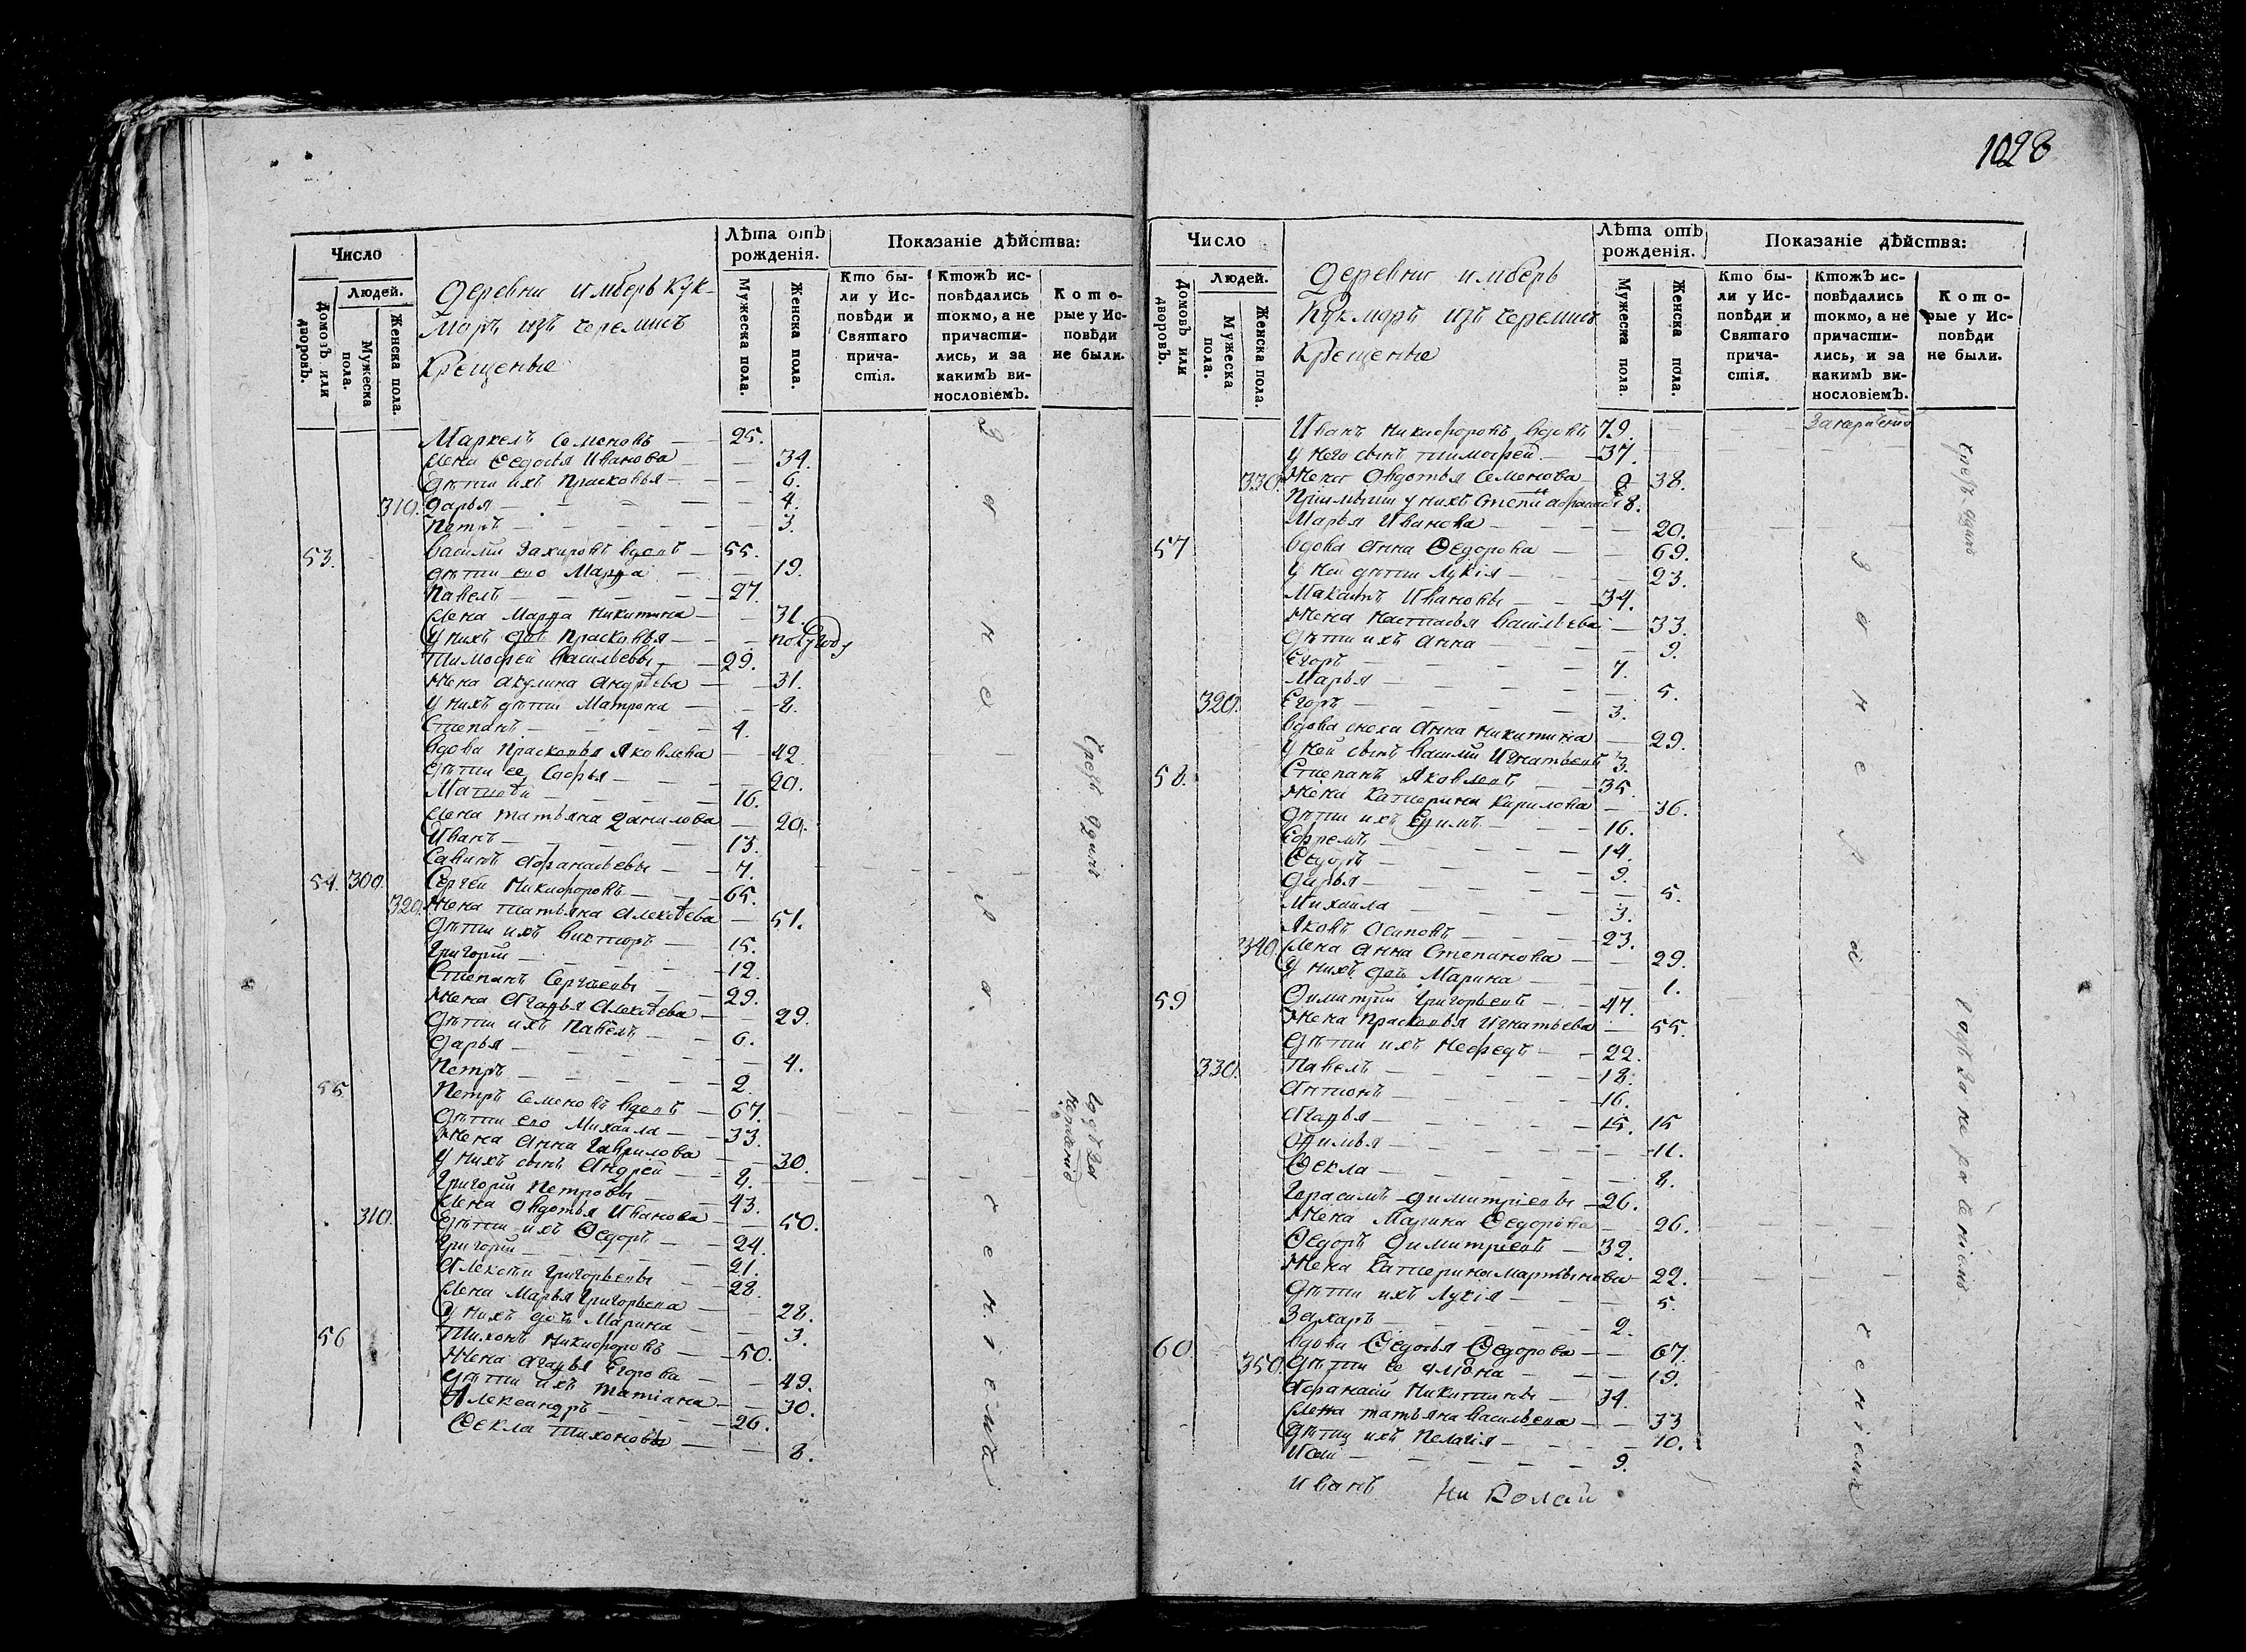 1028
Число
Людей.
Домовъ или дворовъ.
Мужеска пола.
Женска пола.
деревни имберь Кук-
моръ изъ черемисъ
крещеные
Лѣта отъ рожденія.
Мужеска пола.
Женска пола.
Показаніе дѣйства:
Кто бы-
ли у Ис-
повѣди и
Святаго
прича-
стія.
Ктожъ ис-
повѣдались
токмо, а не
причасти-
лись, и за
какимъ ви-
нословіемъ.
Кото-
рые у Ис-
повѣди
не были.
Маркелъ Семеновъ — 25.
жена Федосья Иванова — 34.
дѣти ихъ Прасковья — 6.
310. Дарья — 4.
Петръ — 3.
53. Василий Захаровъ вдовъ — 55.
дѣти его Марфа — 19.
Павелъ — 27.
жена Марфа Никитина — 31.
у нихъ дочь Прасковья — полугоду
Тимофей Васильевы — 29.
жена Акулина Андреева — 31.
у нихъ дѣти Матрона — 8.
Степанъ — 4.
вдова Прасковья Яковлева — 42.
дѣти ее Софья — 20.
Матвѣй — 16.
жена Татьяна Данилова — 20.
Иванъ — 13.
Савинъ Афанасьевы — 7.
54. 300. Сергѣй Никифоровъ — 65.
320. жена Татьяна Алексѣева — 51.
дѣти ихъ Викторъ — 15.
Григорий — 12.
Степанъ Сергѣевы — 29.
жена Агафья Алексѣева — 29.
дѣти ихъ Павелъ — 6.
Дарья — 4.
Петръ — 2.
55 Петръ Семеновъ вдовъ — 67.
дѣти его Михаила — 33.
жена Анна Гаврилова — 30.
у нихъ сынъ Андрей — 2.
Григорий Петровы — 43.
310. жена Овдотья Иванова — 50.
дѣти ихъ Федоръ — 24.
Григорий — 21.
Алексѣй Григорьевы — 28.
жена Марья Григорьева — 28.
у нихъ дочь Марина — 3.
56 Тихонъ Никифоровъ — 50.
жена Агафья Егорова — 49.
дѣти ихъ Татіана — 30.
Александръ — 26.
Фекла Тихоновы — 8.
Число
Людей.
Домовъ или дворовъ.
Мужеска пола.
Женска пола.
деревни имберь
Кукморъ изъ черемисъ
крещеные
Лѣта отъ рожденія.
Мужеска пола
Женска пола.
Показаніе дѣйства:
Кто бы-
ли у Ис-
повѣди и
Святаго
прича-
стія.
Ктожъ ис-
повѣдались
токмо, а не
причасти-
лись, и за
какимъ ви-
нословіемъ.
Кото-
рые у Ис-
повѣди
не были.
Иванъ Никифоровъ вдовъ 79.
у него сынъ Тимофей — 37.
330. жена Овдотья Семенова — 38.
8.
Марья Иванова — 20.
57 вдова Анна Федорова — 69.
у ней дѣти Лукія — 23.
Ивановы — 34.
жена Настасья Васильева — 33.
дѣти ихъ Анна — 9.
Егоръ — 7.
Марья — 5.
320. Егоръ — 3.
вдова сноха Анна Никитина — 29.
у ней сынъ Василий Игнатьевъ 3.
58. Степанъ Яковлевъ — 35.
жена Катерина Кирилова — 36.
дѣти ихъ Ефимъ — 16.
Ефремъ — 14.
Федоръ — 9.
Дарья — 5.
Михаила — 3.
Яковъ Осиповъ — 23.
340. жена Анна Степанова — 29.
у нихъ дочь Марина — 1.
59 Димитрий Григорьевъ — 47.
жена Прасковья Игнатьева — 55.
дѣти ихъ Нефедъ — 22.
330. Павелъ — 18.
Антонъ — 16.
Агафья — 15. 15
Офимья — 11.
Фекла — 8.
Герасимъ Димитріевы — 26.
жена Марина Федорова — 26.
Федоръ Димитріевъ — 32.
жена Катерина Мартынова — 22.
дѣти ихъ Лукія — 5.
Захаръ — 2.
60 вдова Федосья Федорова — 67.
350. дѣти ее Алёна — 19.
Афанасій Никитины — 34.
жена Татьяна Васильева — 33
дѣти ихъ Пелагія — 10.
9.
Иванъ Николай